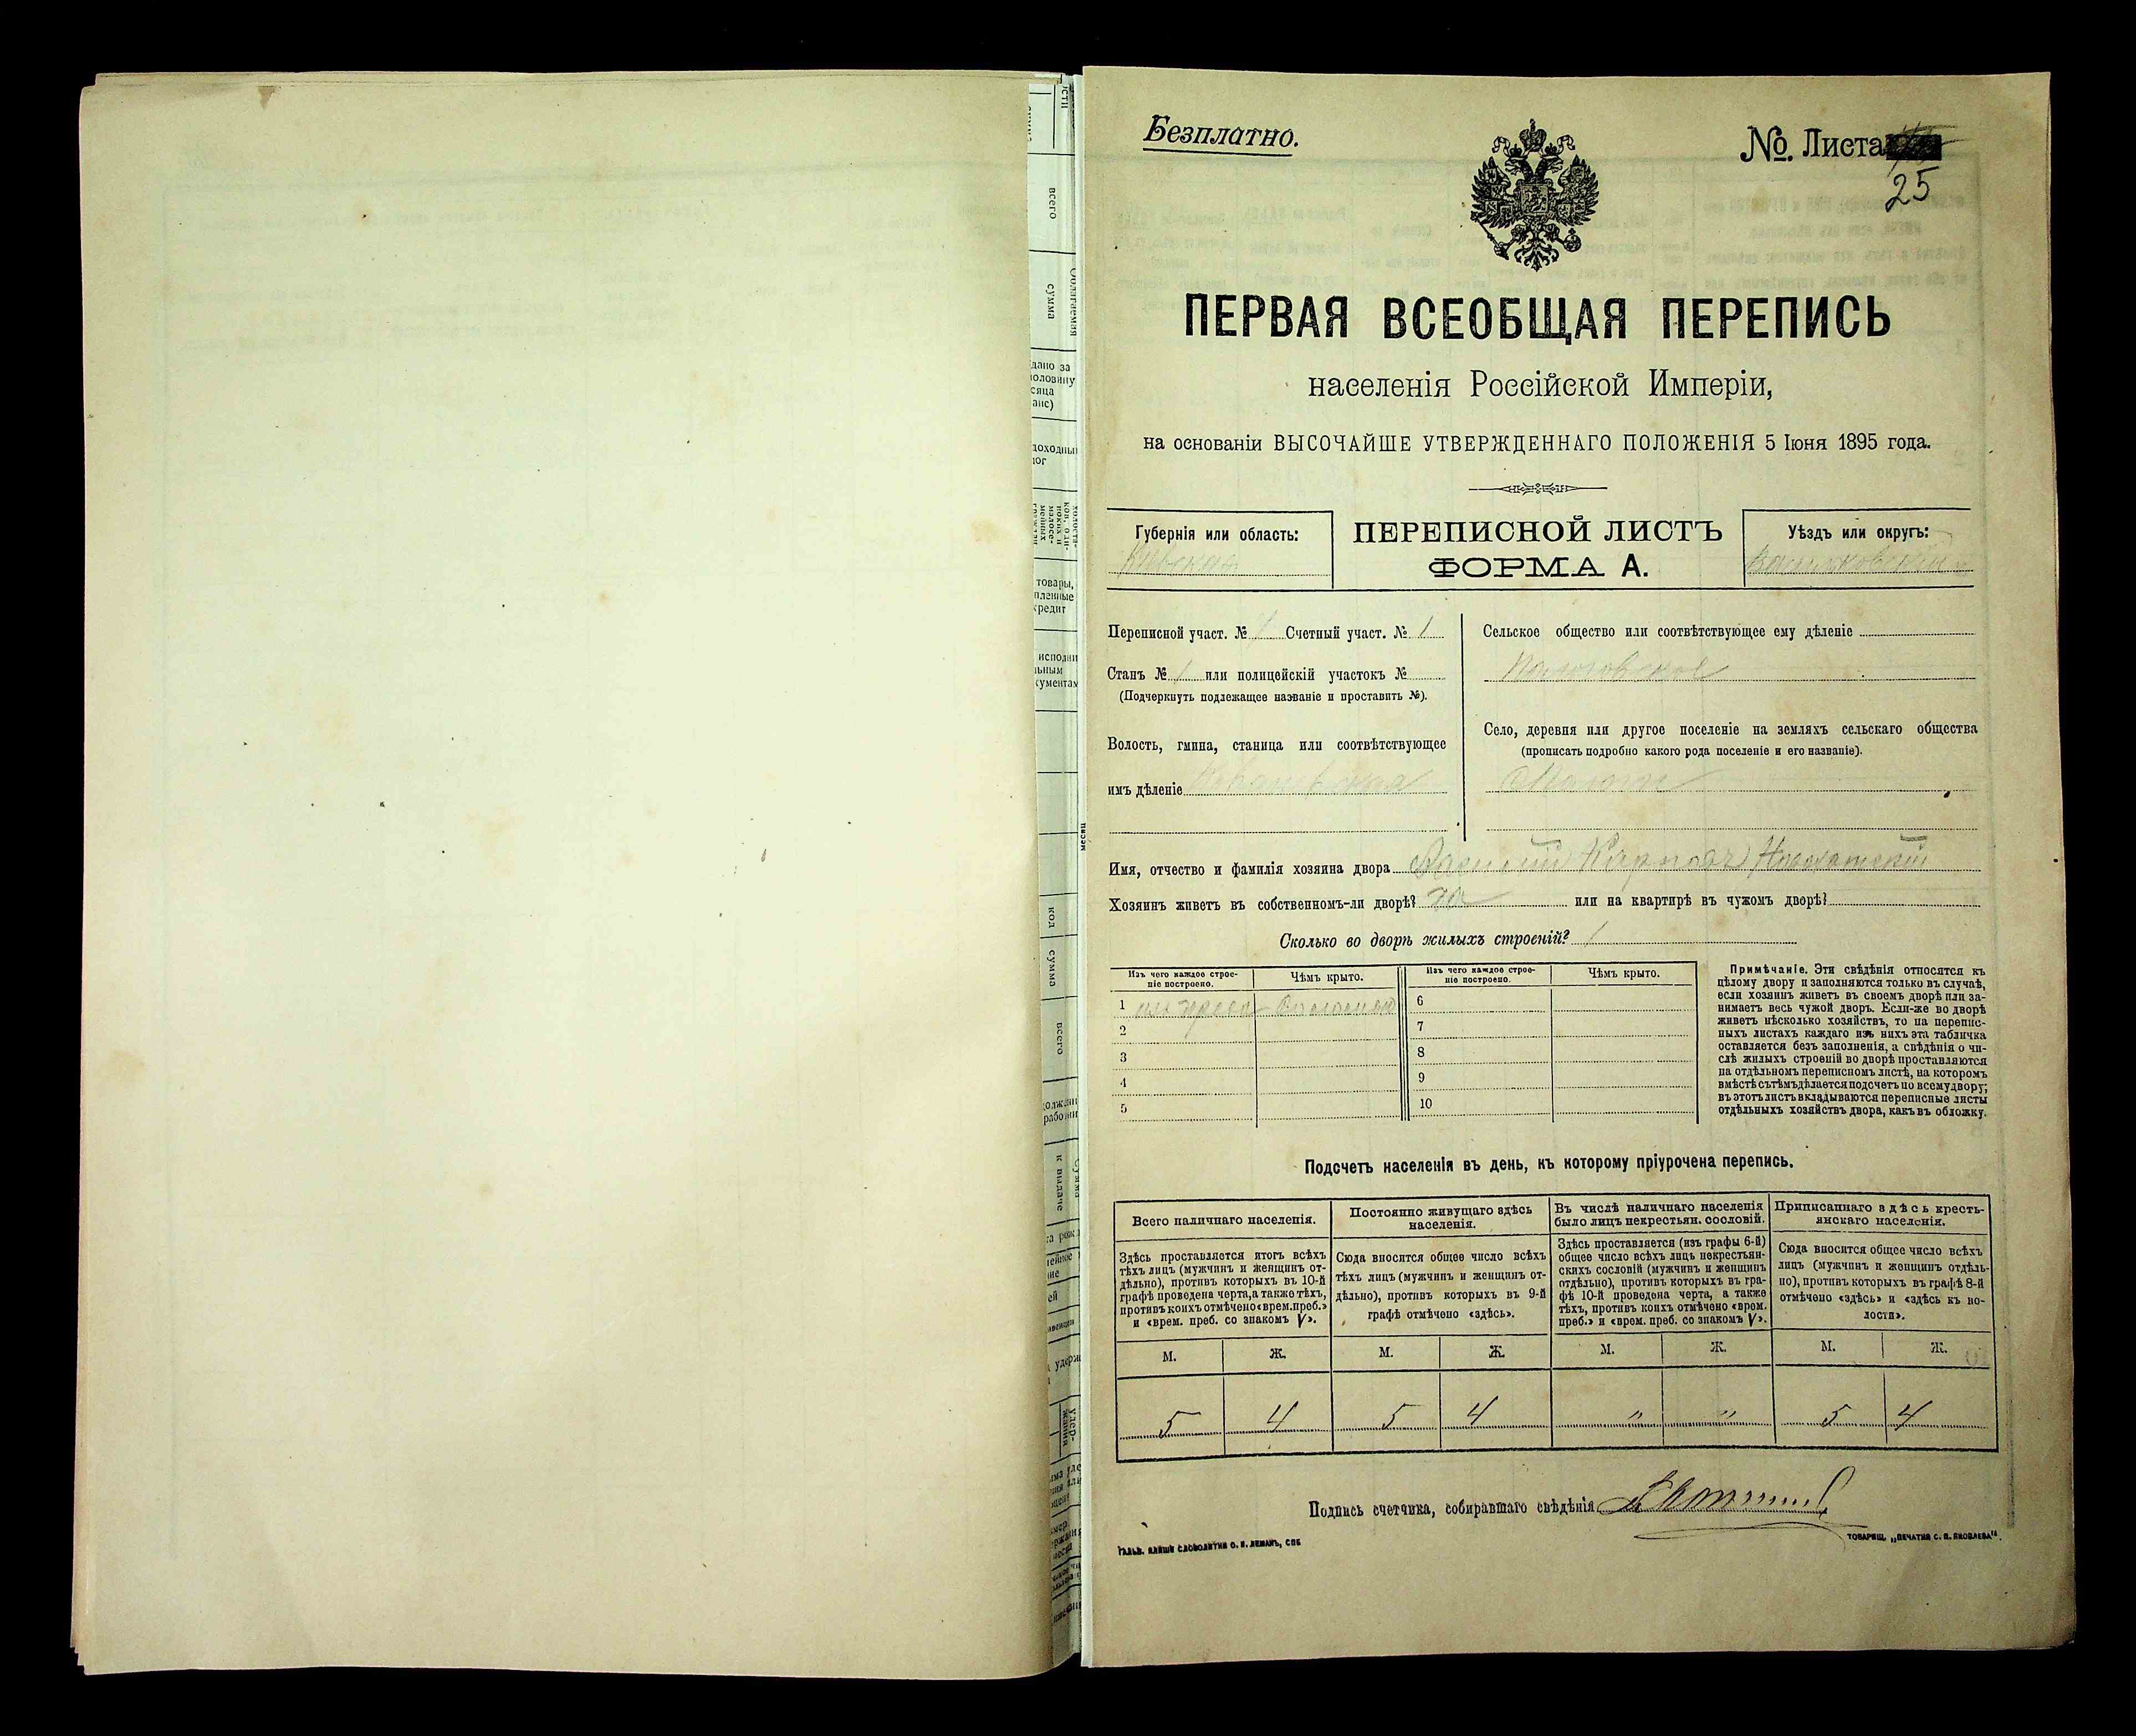 Безплатно.
№. Листа
25
ПЕРВАЯ ВСЕОБЩАЯ ПЕРЕПИСЬ
населенія Россійской Имперіи,
на основаніи ВЫСОЧАЙШЕ УТВЕРЖДЕННАГО ПОЛОЖЕНІЯ 5 Іюня 1895 года.
Губернія или область:
Кіевская
ПЕРЕПИСНОЙ ЛИСТЪ
ФОРМА А.
Уѣздъ или округъ:
Васильковскій
Переписной участ. № 1 Счетный участ. № 1
Станъ № 1 или полицейскій участокъ №
(Подчеркнуть подлежащее названіе и проставить №).
Волость, гмина, станица или соотвѣтствующее
имъ дѣленіе
Сельское общество или соотвѣтствующее ему дѣленіе
Село, деревня или другое поселеніе на земляхъ сельскаго общества
(прописать подробно какого рода поселеніе и его названіе).
Имя, отчество и фамилія хозяина двора Василій Карповъ
Хозяинъ живетъ въ собственномъ-ли дворѣ? да или на квартирѣ въ чужомъ дворѣ?
Сколько во дворѣ жилыхъ строеній? 1
Изъ чего каждое строе-
ніе построено.
Чѣмъ крыто.
Изъ чего каждое строе-
ніе построено.
Чѣмъ крыто.
1 изъ дерева Соломою
2
3
4
5
6
7
8
9
10
Примѣчаніе. Эти свѣдѣнія относятся къ
цѣлому двору и заполняются только въ случаѣ,
если хозяинъ живетъ въ своемъ дворѣ или за-
нимаетъ весь чужой дворъ. Если-же во дворѣ
живетъ нѣсколько хозяйствъ, то на перепис-
ныхъ листахъ каждаго изъ нихъ эта табличка
оставляется безъ заполненія, а свѣдѣнія о чи-
слѣ жилыхъ строеній во дворѣ проставляются
на отдѣльномъ переписномъ листѣ, на которомъ
вмѣстѣ съ тѣмъ дѣлается подсчетъ по всему двору;
въ этотъ листъ вкладываются переписные листы
отдѣльныхъ хозяйствъ двора, какъ въ обложку.
Подсчетъ населенія въ день, къ которому пріурочена перепись.
Всего наличнаго населенія.
Постоянно живущаго здѣсь
населенія.
Въ числѣ наличнаго населенія
было лицъ некрестьян. сословій.
Приписаннаго здѣсь кресть-
янскаго населенія.
Здѣсь проставляется итогъ всѣхъ
тѣхъ лицъ (мужчинъ и женщинъ от-
дѣльно), противъ которыхъ въ 10-й
графѣ проведена черта, а также тѣхъ,
противъ коихъ отмѣчено «врем. преб.»
и «врем. преб. со знакомъ V».
Сюда вносится общее число всѣхъ
тѣхъ лицъ (мужчинъ и женщинъ от-
дѣльно), противъ которыхъ въ 9-й
графѣ отмѣчено «здѣсь».
Здѣсь проставляется (изъ графы 6-й)
общее число всѣхъ лицъ некрестьян-
скихъ сословій (мужчинъ и женщинъ
отдѣльно), противъ которыхъ въ гра-
фѣ 10-й проведена черта, а также
тѣхъ, противъ коихъ отмѣчено «врем.
преб.» и «врем. преб. со знакомъ V».
Сюда вносится общее число всѣхъ
лицъ (мужчинъ и женщинъ отдѣль-
но), противъ которыхъ въ графѣ 8-й
отмѣчено «здѣсь» и «здѣсь къ во-
лости».
М. Ж. М. Ж. М. Ж. М. Ж.
5 4 5 4 " " 5 4
Подпись счетчика, собиравшаго свѣдѣнія
ТОВАРИЩ. „ПЕЧАТНЯ С. П. ЯКОВЛЕВА".
ГАЛЬВ. КЛИШЕ СЛОВОЛИТНИ О. И. ЛЕМАНЪ, СПБ
всего
сумма
товары,
кредит
код
сумма
всего
к выдаче
месяц